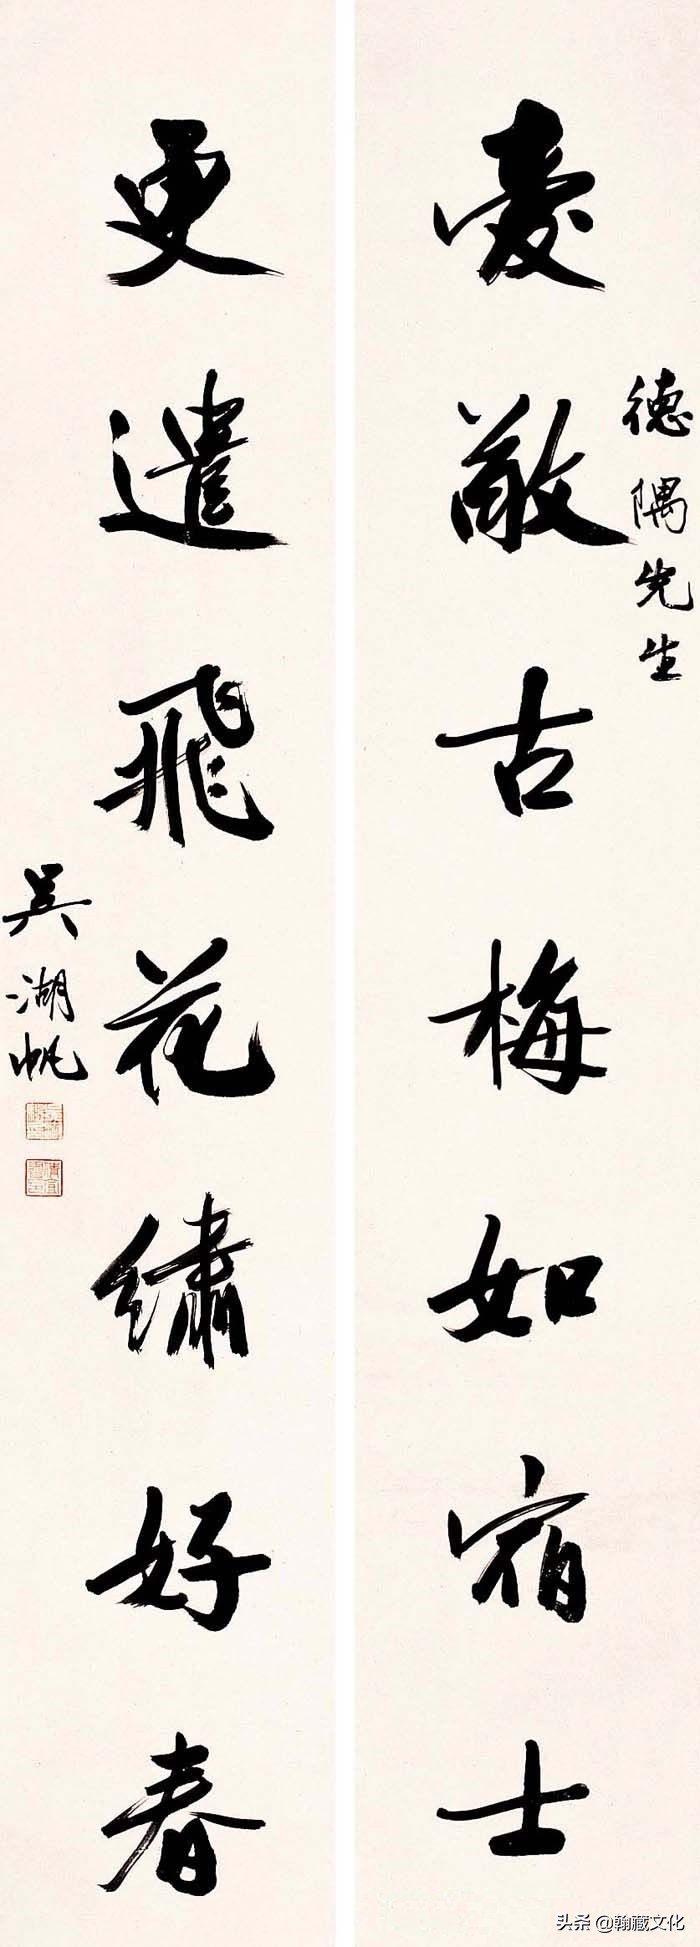 德隅先生
愛敬古梅如宿士
更遣飛花繡好春
吳湖帆
头条 @翰藏文化